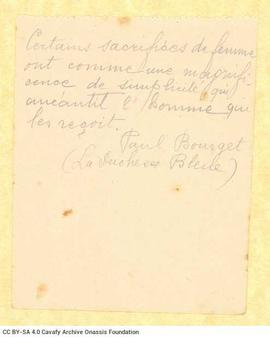 Certains sacrifices de femme
ont comme une magnifi-
cence de simplicité qui
anéantit l'homme qui
les reçoit.
Paul Bourget
(La Duchesse Bleue)
CC BY-SA 4.0 Cavafy Archive Onassis Foundation